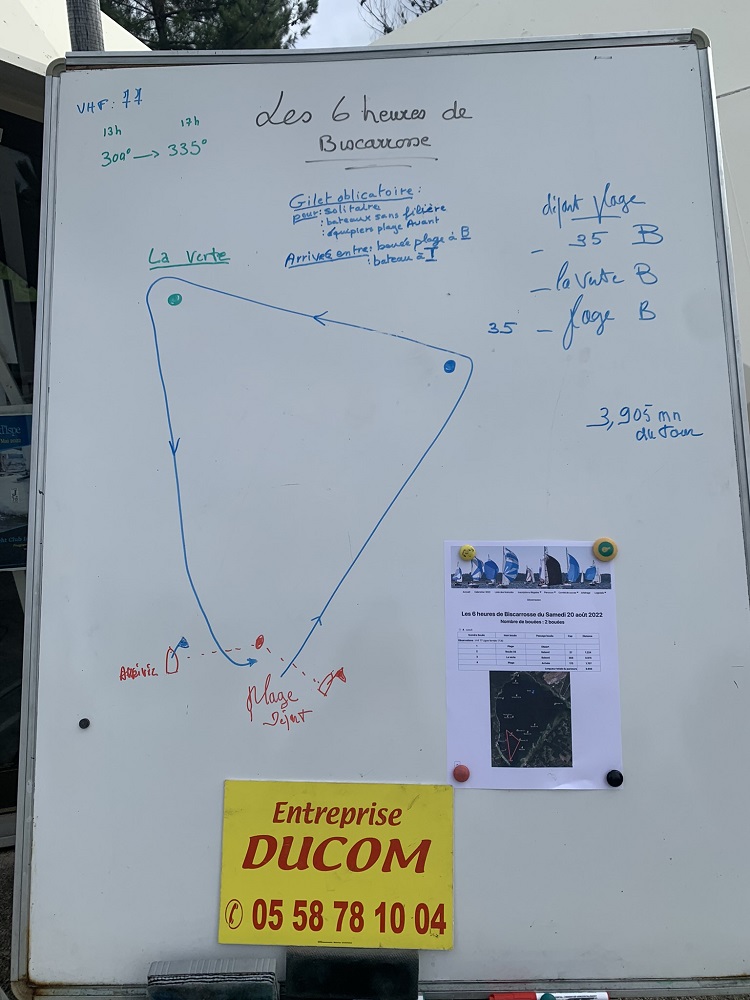 VHF: 77
13h 17h
300° → 335°
Les 6 heures de
Biscarrosse
Gilet oblicatoire :
pour : solitaire
: bateaux sans filière
: équipiers plage Avant
Arrivée entre : bouée plage à B
: bateau à T
départ plage
- 35 B
- la verte B
35 - plage B
3,905 mn
du tour
La Verte
Arrivée
plage
Départ
Les 6 heures de Biscarrosse du Samedi 20 août 2022
Nombre de bouées : 2 bouées
Entreprise
DUCOM
05 58 78 10 04